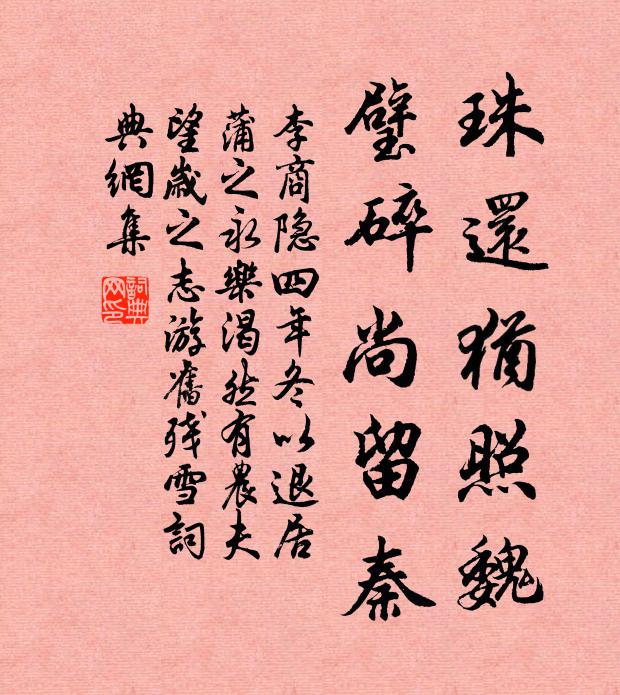 珠還猶照魏
璧碎尚留秦
李商隐四年冬以退居
蒲之永樂渴然有農夫
望歲之志游舊残雪詞
典網集
詞典网印